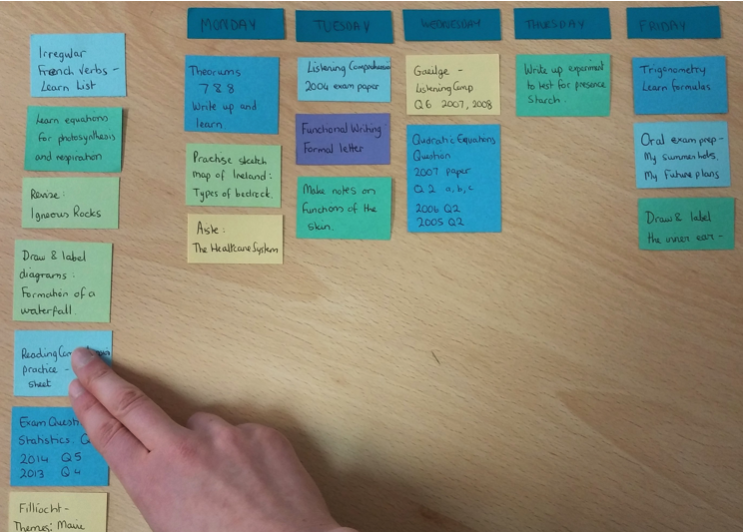 MONDAY
TUESDAY
WEDNESDAY
THURSDAY
FRIDAY
Irregular
French Verbs -
Learn List
Learn equations
for photosynthesis
and respiration
Revise:
Igneous Rocks
Draw & label
diagrams:
Formation of a
waterfall.
Reading
practice -
sheet
Exam
Statistics.
2014 Q5
2013 Q4
Filíocht -
Themes:
Theorums
7 & 8
Write up and
learn
Practise sketch
map of Ireland:
Types of bedrock.
Aiste:
The Healthcare System
Listening Comprehension
2004 exam paper
Functional Writing
Formal letter
Make notes on
Functions of the
skin.
Gaeilge -
Listening Comp
Q6 2007, 2008
Quadratic Equations
Question
2007 paper
Q 2 a, b, c
2006 Q2
2005 Q2
Write up experiment
to test for presence
Starch.
Trigonometry
Learn formulas
Oral exam prep -
My summer hols,
My future plans
Draw & label
the inner ear -